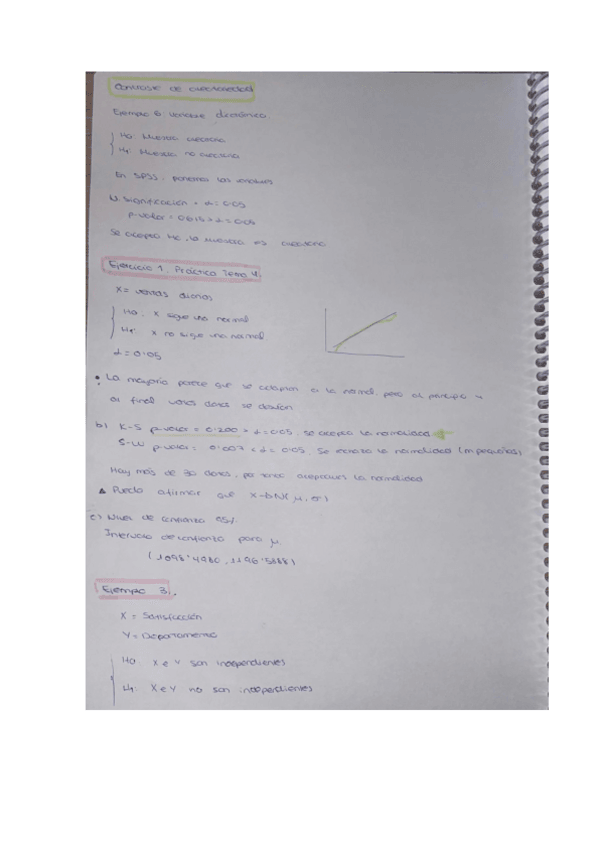 Contraste de aleatoriedad
Ejemplo 6: variable dicotómica.
H0: Muestra aleatoria
H1: Muestra no aleatoria
En SPSS, ponemos las variables
N. Significación = α = 0.05
p-valor = 0.615 > α = 0.05
Se acepta H0, la muestra es aleatoria
Ejercicio 1. Práctica Tema 4.
X = ventas diarias
H0: X sigue una normal
H1: X no sigue una normal
α = 0.05
• La mayoría parece que se adaptan a la normal, pero al principio y
al final varios datos se desvían
b) K-S p-valor = 0.200 > α = 0.05, se acepta la normalidad
S-W p-valor = 0.007 < α = 0.05, Se rechaza la normalidad (m pequeñas)
Hay más de 30 datos, por tanto aceptamos la normalidad
Puedo afirmar que X→N(μ, σ)
c) Nivel de confianza 95%.
Intervalo de confianza para μ.
(1098'4980, 1196'5888)
Ejemplo 3.
X = Satisfacción
Y = Departamento
H0: X e Y son independientes
H1: X e Y no son independientes